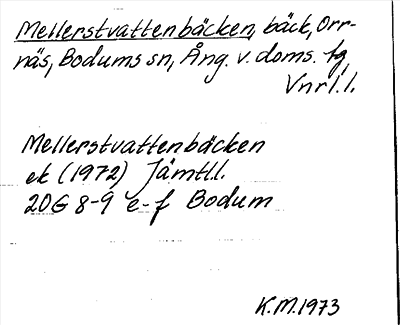 Mellerstvattenbäcken, bäck, Orr-
näs, Bodums sn, Ång. v. doms. fg,
Vnrl. l.
Mellerstvattenbäcken
ek (1972) Jämtl.l.
20G 8-9 e-f Bodum
K.M. 1973